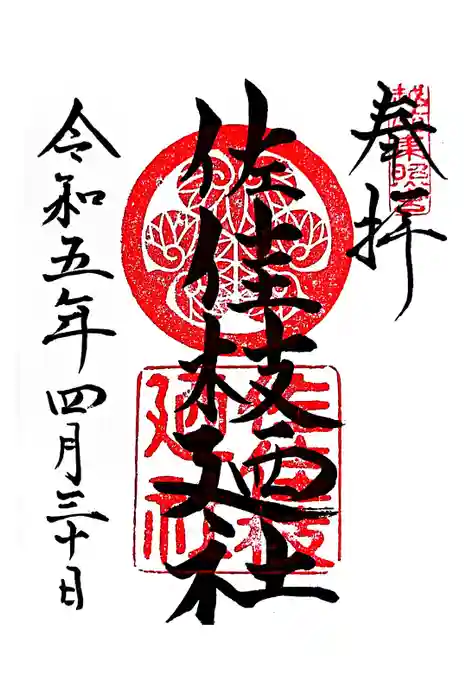 奉拝
佐佳枝廼社
佐佳枝
廼社
令和五年四月三十日